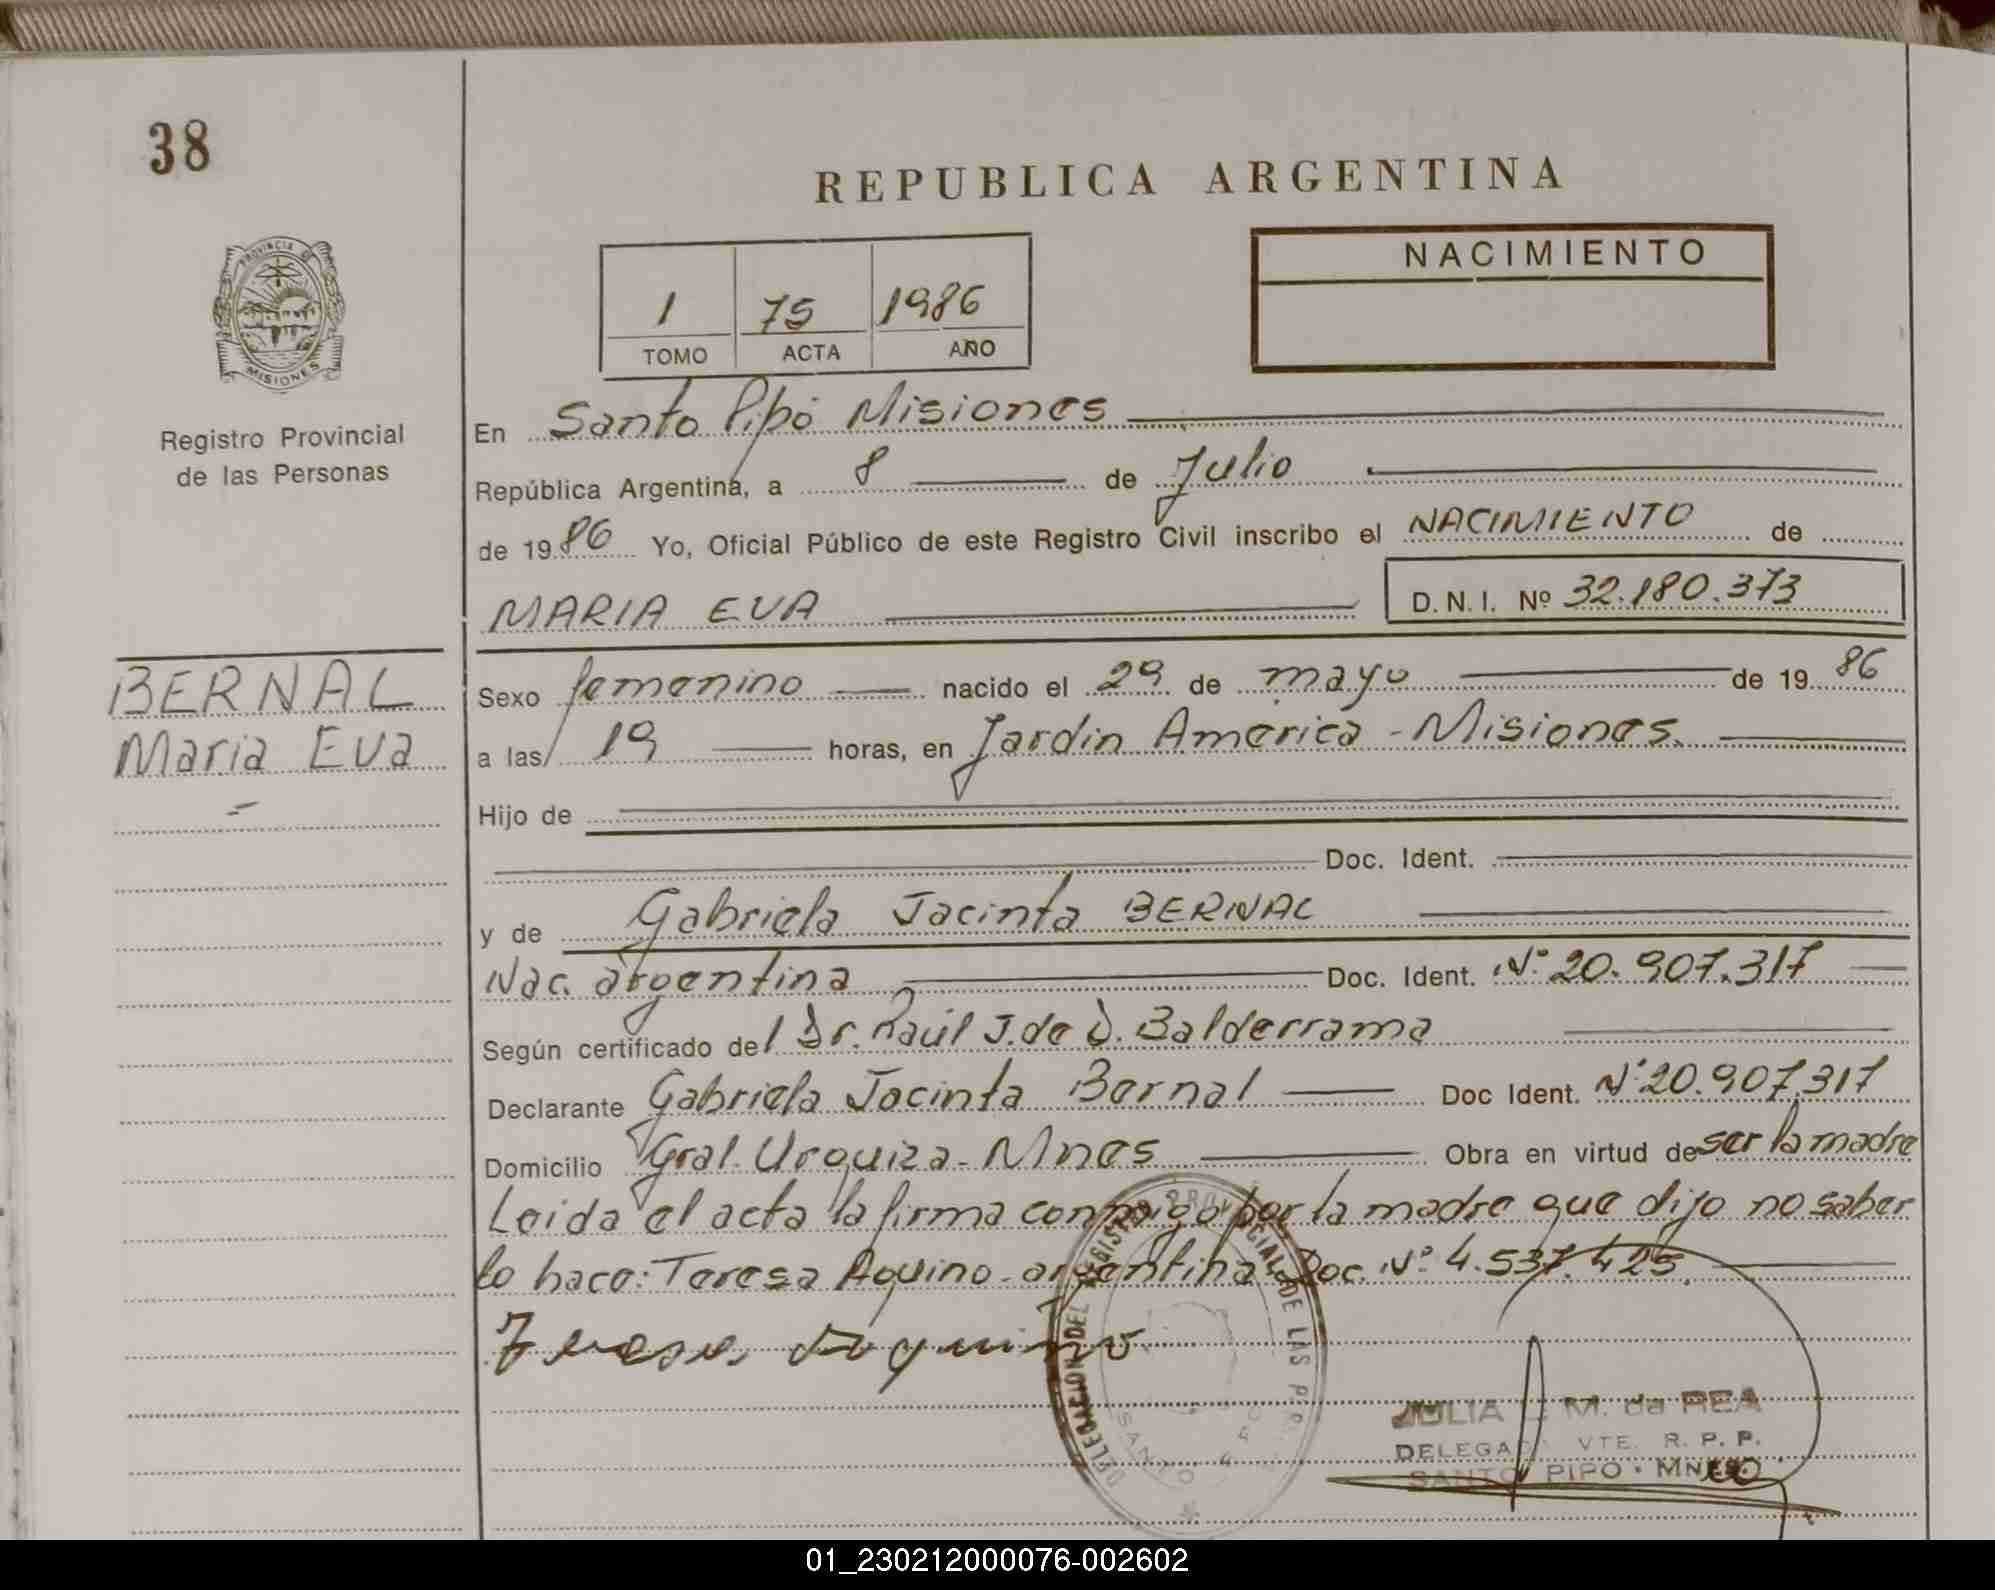 38
REPUBLICA ARGENTINA
PROVINCIA DE
MISIONES
1 75 1986
TOMO ACTA AÑO
NACIMIENTO
Registro Provincial
de las Personas
En Santo Pipó Misiones
República Argentina, a 8 de Julio
de 1986 Yo, Oficial Público de este Registro Civil inscribo el NACIMIENTO de
MARIA EVA D.N.I. Nº 32.180.373
BERNAL
Maria Eva
Sexo femenino nacido el 29 de mayo de 1986
a las 19 horas, en Jardin América - Misiones.
Hijo de
Doc. Ident.
y de Gabriela Jacinta BERNAL
Nac. argentina Doc. Ident. Nº 20.907.317
Según certificado del Dr. Raúl J. de D. Balderrama
Declarante Gabriela Jacinta Bernal Doc Ident. Nº 20.907.317
Domicilio Gral. Urquiza - Mnes Obra en virtud de ser la madre
Leida el acta la firma conmigo por la madre que dijo no saber
lo hace: Teresa Aquino - argentina Doc. Nº 4.537.425.
Teresa Aquino
DELEGACION DEL REGISTRO PROVINCIAL DE LAS
SANTO
JULIA M. de REA
DELEGADA VTE. R. P. P.
SANTO PIPO - MNES.
01_230212000076-002602